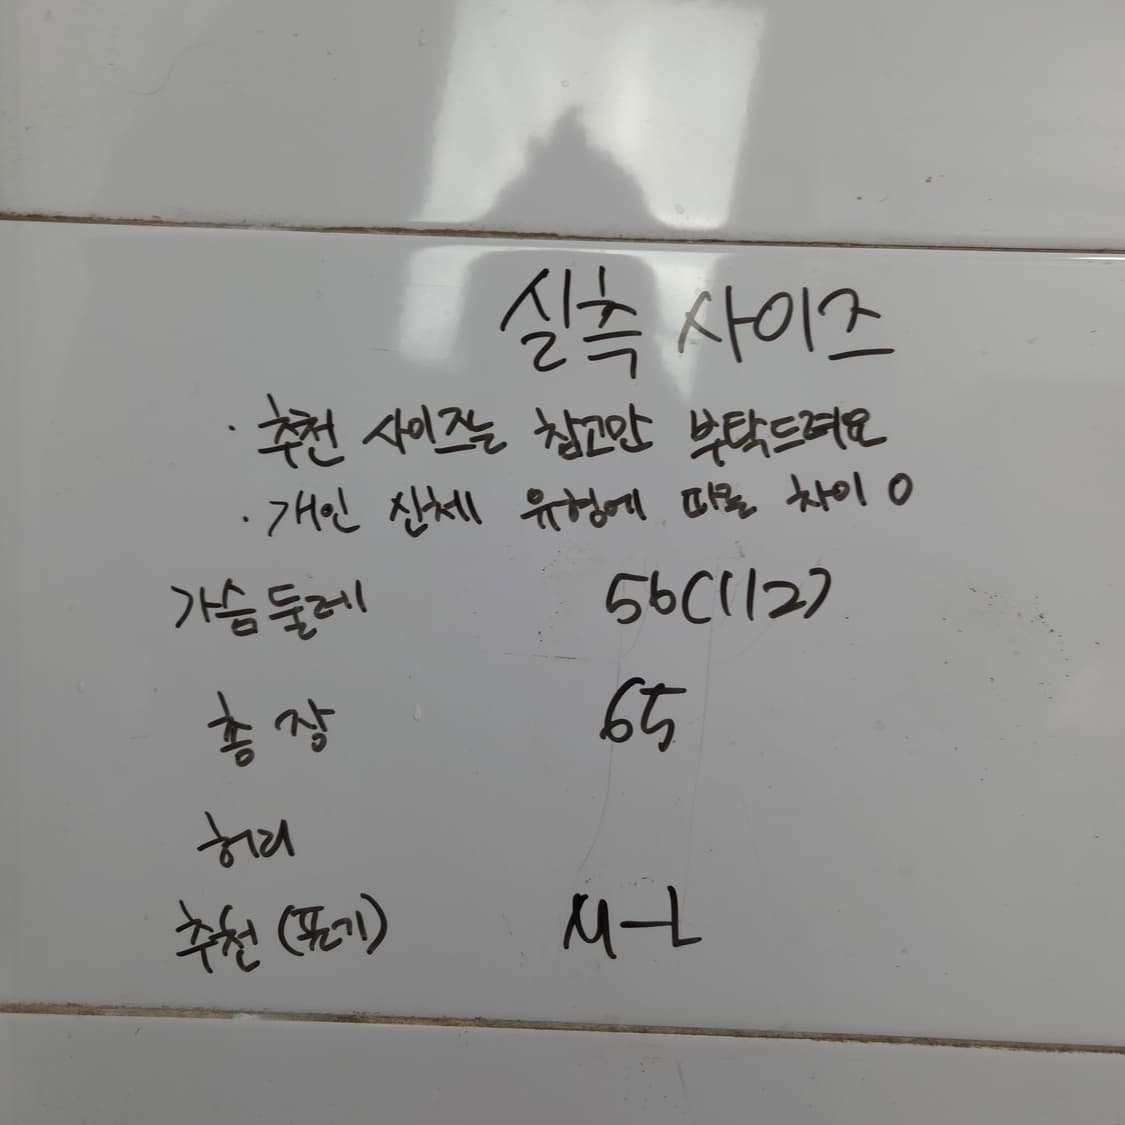 실측 사이즈
· 추천 사이즈는 참고만 부탁드려요
· 개인 신체 유형에 따를 차이 O
가슴둘레 56(112)
총장 65
허리
추천(표기) M-L